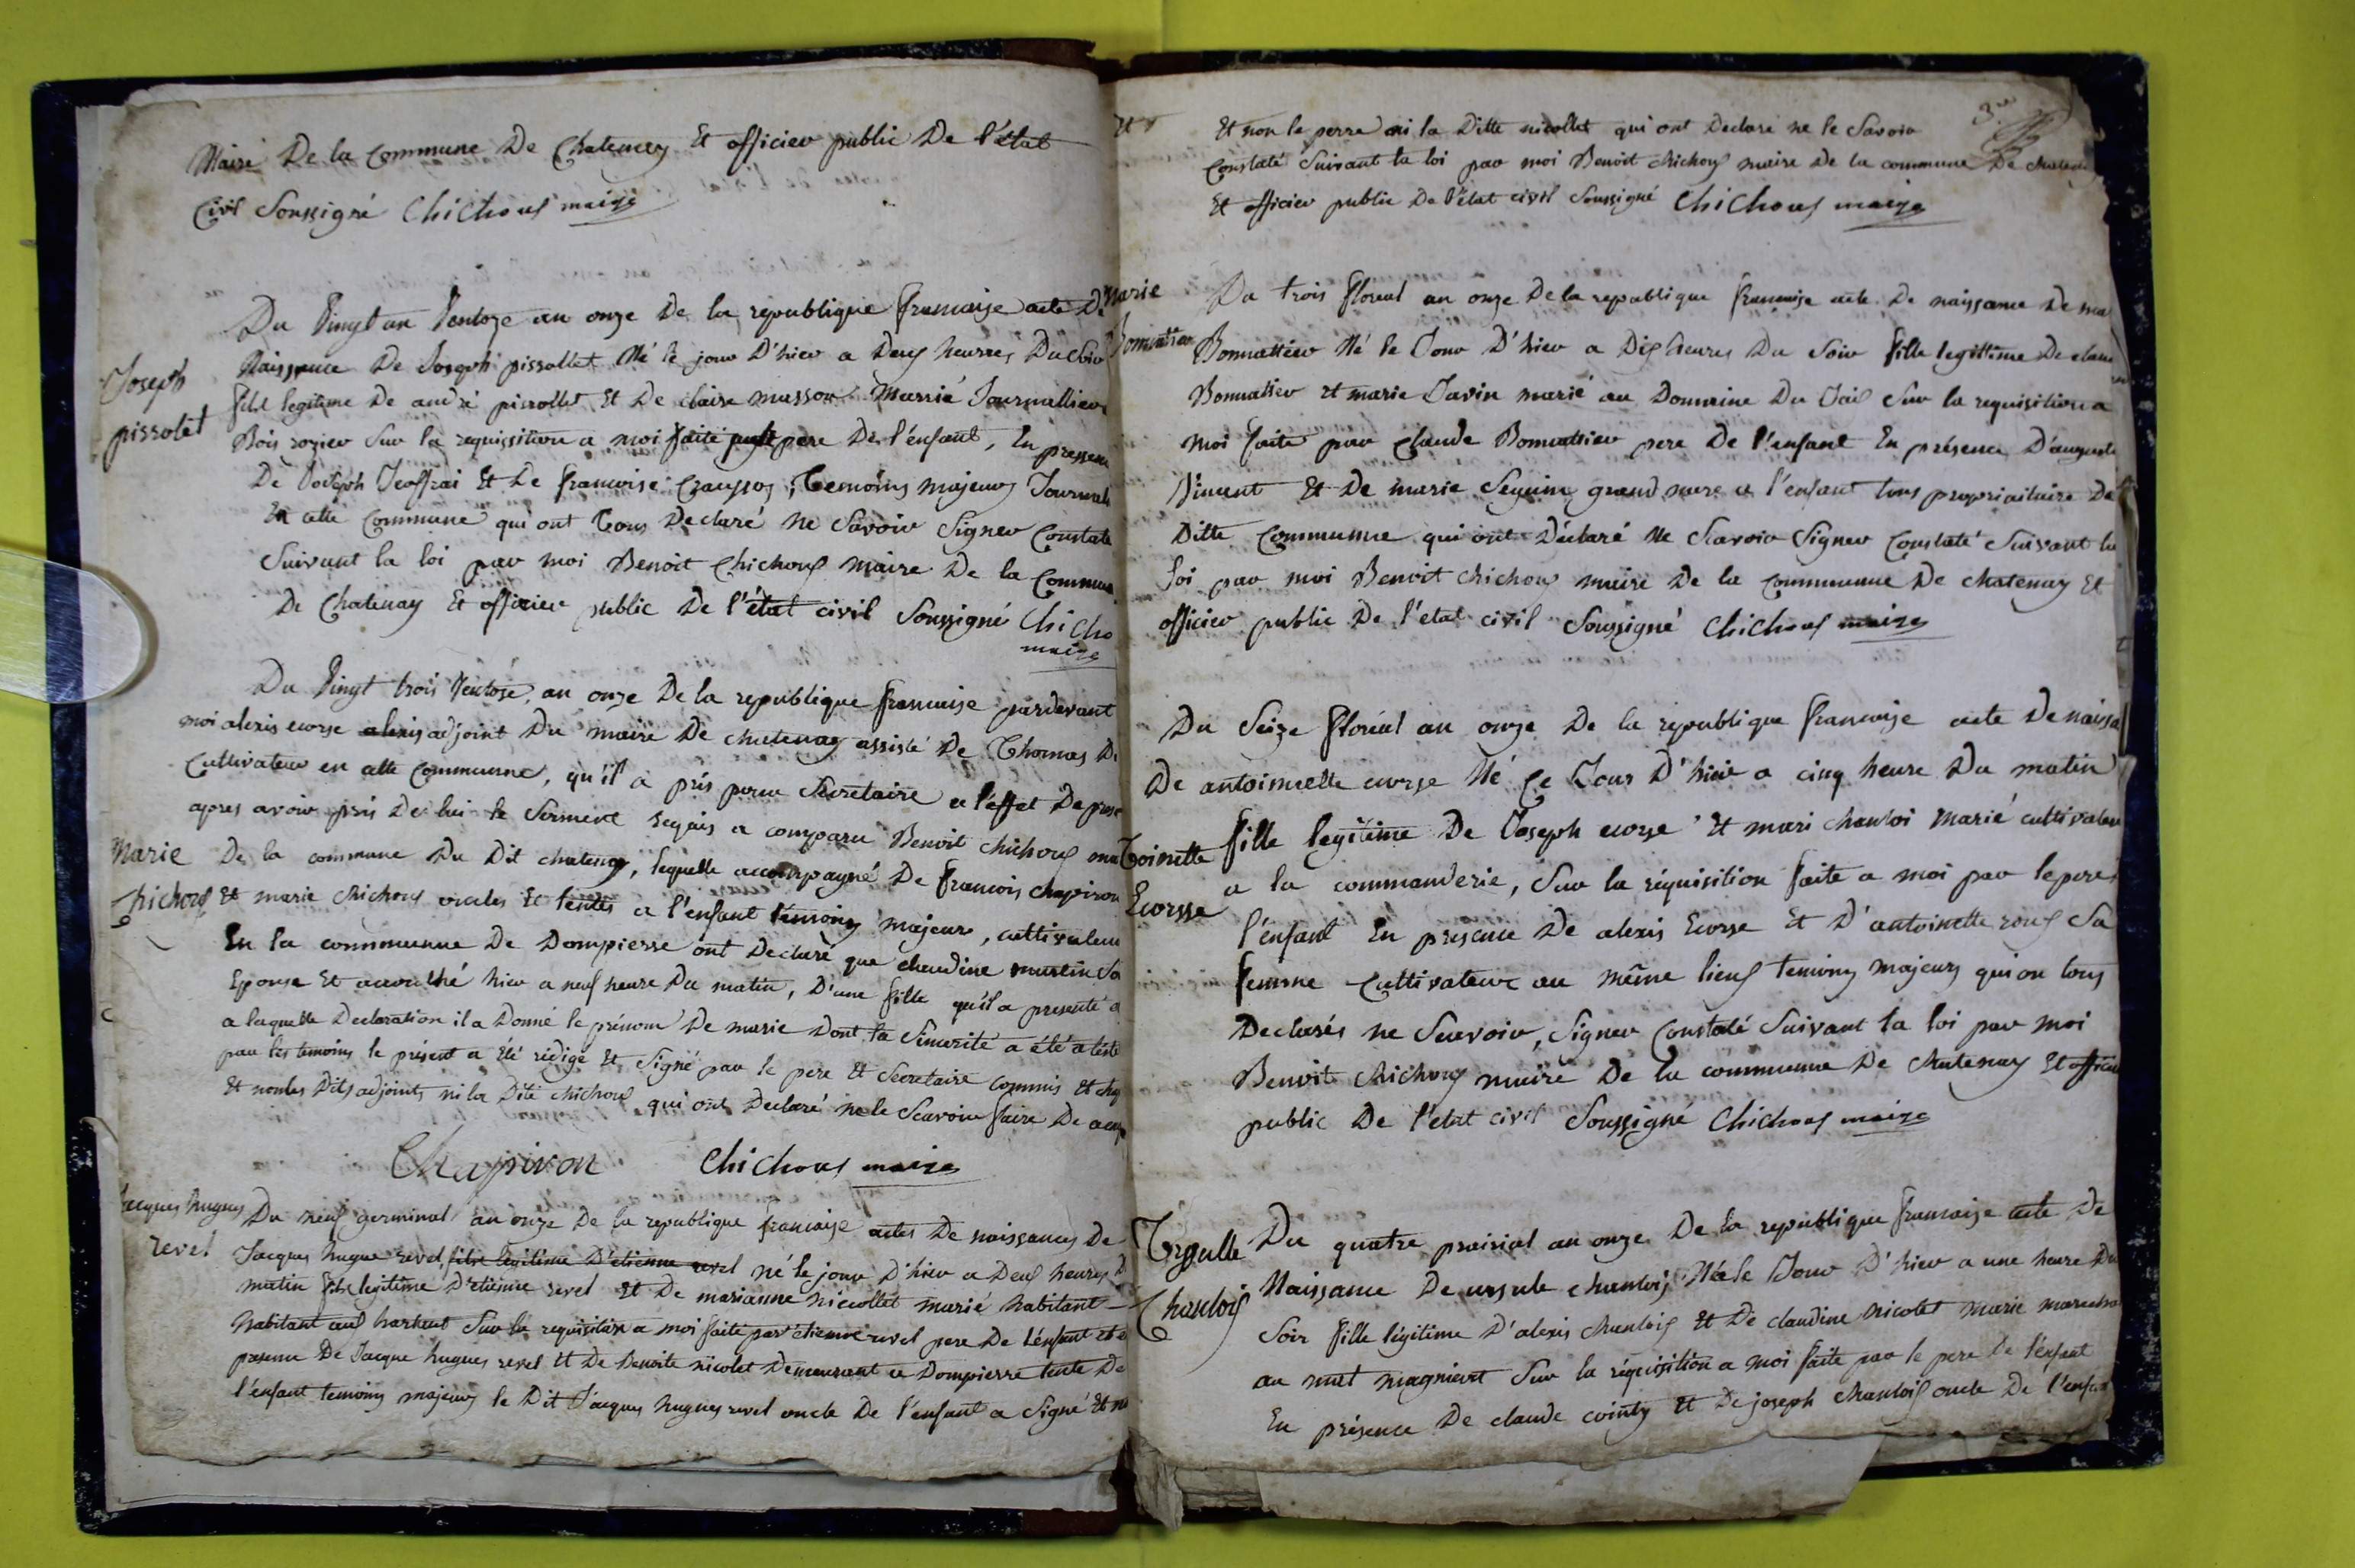 Maire De la Commune De Chatenay Et officier public De l'état
Civil Soussigné Chichoux maire
Joseph
pissolet
Du Vingt un Ventoze an onze De la republique francaise acte De
Naissance De Joseph pissollet Né le jour D'hier a Deux heurres Du Soir
fils legitime De andré pissollet Et De claire musson Marrié Journallier
Bois rozier Sur la requissition a moi faite pere De l'enfant, En pressen
De Joseph Jeoffrai Et De francoise Temoins majeurs Journal
En cette Commune qui ont Tous Declaré Ne Savoir Signer Constaté
Suivant la loi par moi Benoit Chichoux Maire De la Commun
De Chatenay Et officier public De l'état civil Soussigné Chicho
maire
Marie
Chichoux
Du Vingt trois Ventose an onze De la republique francaise pardevant
moi alexis ecorse alexis adjoint Du maire De chatenay assisté De Thomas D
Cultivateur en cette Commune, qu'il a pris pour Secretaire a l'effet De
apres avoir pris De lui le Serment requis a comparu Benoit Chichoux mai
De la commune Du Dit chatenay, lequelle accompagné De francois chapiron
Et marie chichoux oncles Et tentes a l'enfant témoins majeurs, cultivateur
En la commmunne De Dompierre ont Declaré que claudine martin Sa
Epouse Et accouché hier a neuf heure Du matin, D'une fille qu'il a presenté a
a laquelle Declaration il a Donné le prénom De marie Dont la Sincerité a été atesté
par les temoins le présent a été rédigé Et Signé par le pere Et Secretaire Commis Et
Et non les Dits adjoints ni la Dite chichoux qui ont Declaré ne le Scavoir faire De
Chapiron Chichoux maire
Jacques hugues
revel
Du neuf germinal an onze De la republique francaise actes De naissances De
Jacques hugue revel, fils legitime D'etienne revel né le jour D'hier a Deux heures D
matin fils legitime D'etienne revel Et De marianne niccollet marié habitant
habitant aux Sur la requisition a moi faite par etienne revel pere De l'enfant et e
presence De Jacque hugues revel Et De Benoite nicolet Demeurant a Dompierre tente De
l'enfant temoins majeurs le Dit Jacques hugues revel oncle De l'enfant a Signé Et n
3
Et non le perre ni la Ditte nicollet qui ont Declaré ne le Savoir
Constaté Suivant la loi par moi Benoit chichoux maire De la commune De chatenay
Et officier public De l'état civil Soussigné Chichoux maire
Marie
Bonnattier
Du trois floreal an onze De la republique francaise acte De naissance De ma
Bonnattier Né le Jour D'hier a Dix heures Du Soir fille legittime De claude
Bonnattier et marie Savin marié au Domaine Du Sur la requisition a
moi faite par Claude Bonnattier pere De l'enfant En présence D'auguste
Vincent Et De marie Seguin grand mere a l'enfant tous propriaitaire De
Ditte Commune qui ont Déclaré Ne Scavoir Signer Constaté Suivant la
loi par moi Benoit chichoux maire De la commmune De chatenay Et
officier public De l'état civil Soussigné Chichoux maire
Toinette
Ecorsse
Du Seize floréal an onze De la republique francaise acte De naissa
De antoinette ecorse Né Ce Jour D'hier a cinq heure Du matin
fille legitime De Joseph ecorse Et mari chanloi Marié cultivateur
a la commanderie, Sur la réquisition faite a moi par le pere
l'enfant En presence De alexis Ecorse Et D'antoinette roux Sa
femme Cultivateur au même lieux temoins majeurs qui on tous
Declarés ne Scavoir, Signer Constaté Suivant la loi par moi
Benoit chichoux maire De la commune De Chatenay Et officier
public De l'etat civil Soussigné Chichoux maire
Chanloix
Du quatre prairial an onze De la republique francaise acte De
Naissance De ursule chanloix Née le Jour D'hier a une heure Du
Soir fille légitime D'alexis chanloix Et De claudine nicolet marié
au Sur la réquisition a moi faite par le pere De l'enfant
En présence De claude cointy Et De joseph chanloix oncle De l'enfant